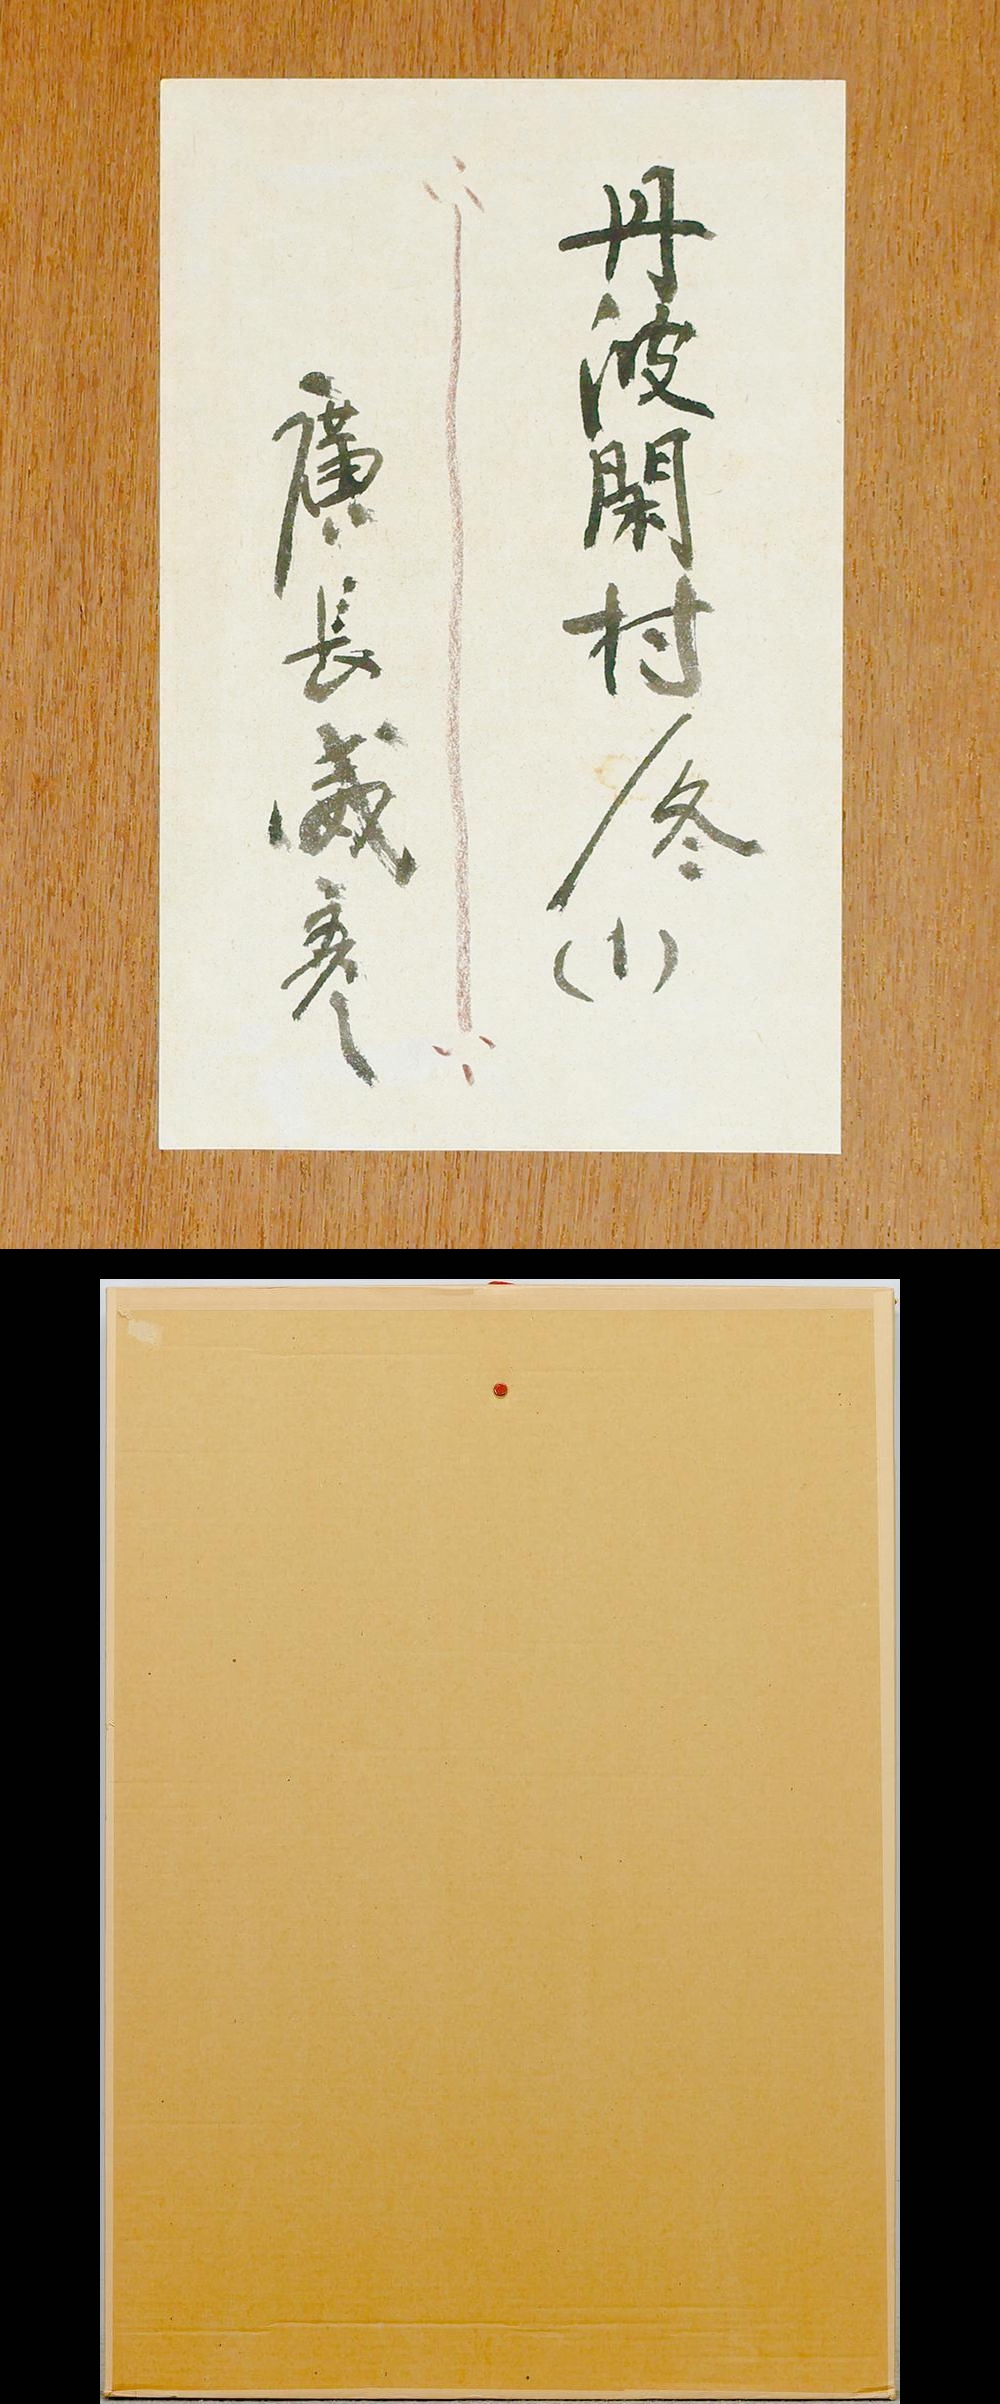 丹波閑村／冬(1)
廣長威彦